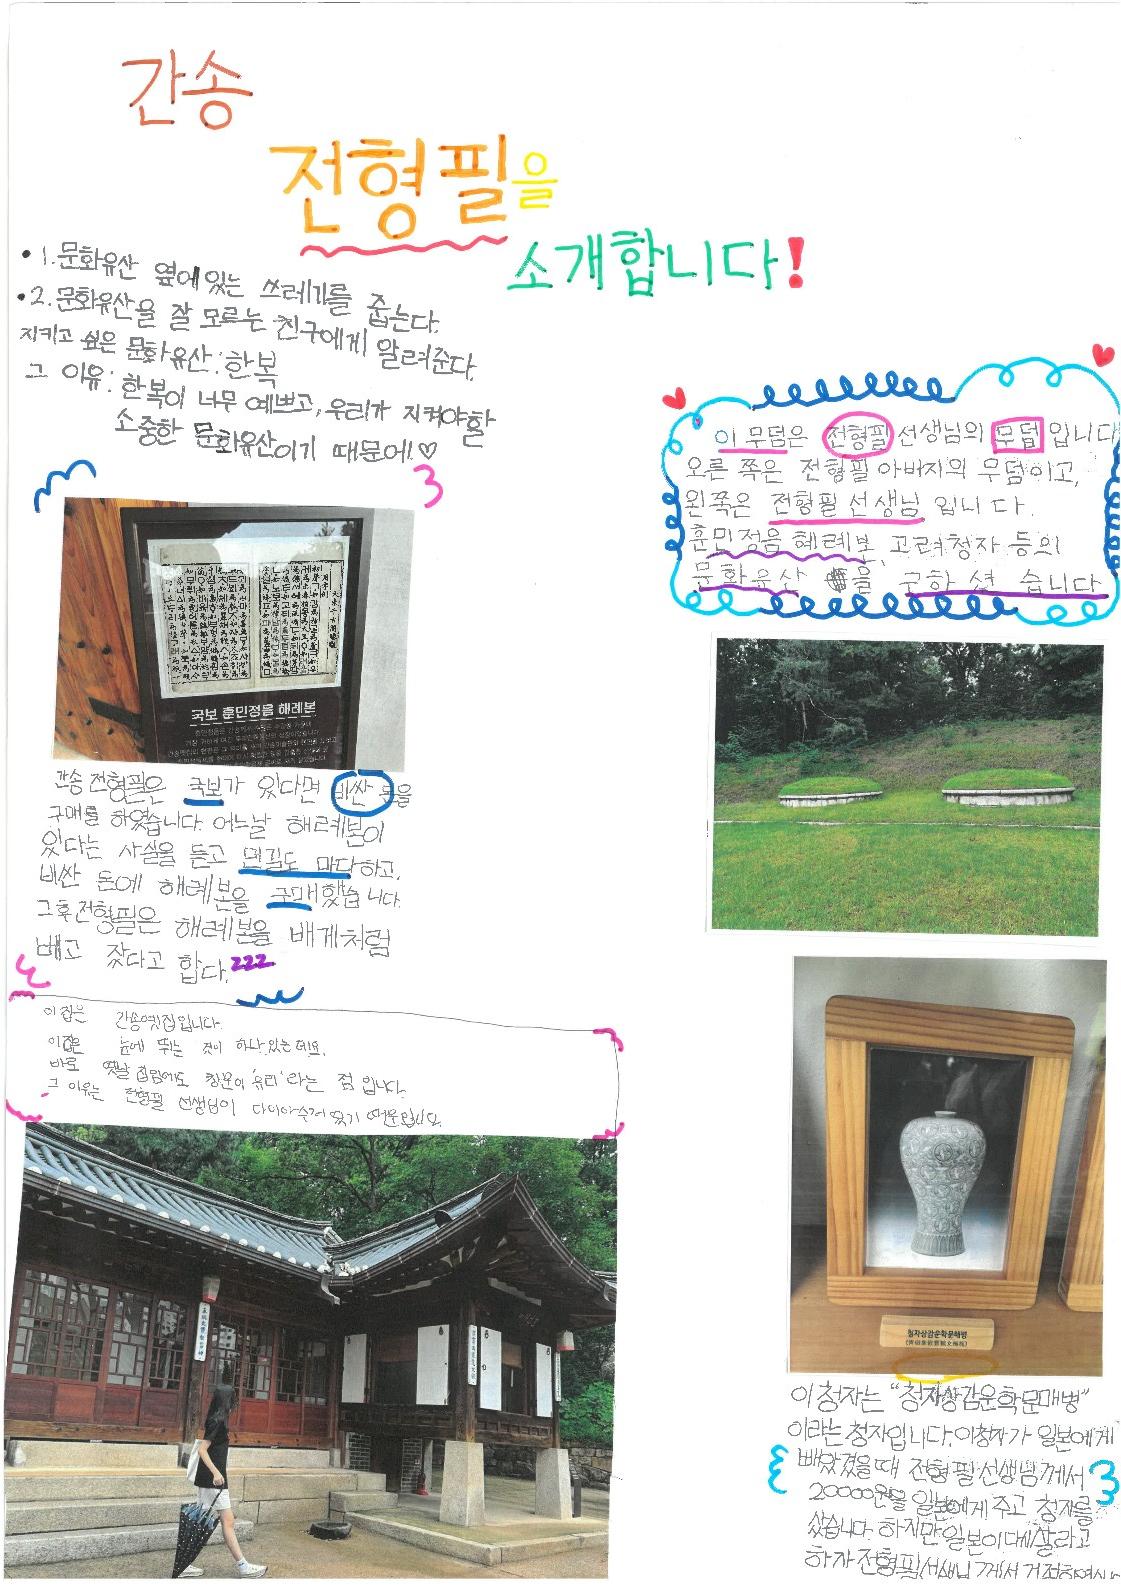 간송
전형필을
소개합니다!
• 1. 문화유산 옆에 있는 쓰레기를 줍는다.
• 2. 문화유산을 잘 모르는 친구에게 알려준다.
지키고 싶은 문화유산 : 한복
그 이유 : 한복이 너무 예쁘고, 우리가 지켜야할
소중한 문화유산이기 때문에!♡
이 무덤은 전형필 선생님의 무덤 입니다
오른 쪽은 전형필 아버지의 무덤이고,
왼쪽은 전형필 선생님 입니다.
훈민정음 혜례본, 고려청자 등의
문화유산을 구하셨습니다
국보 훈민정음 해례본
간송 전형필은 국보가 있다면 비싼 돈을
구매를 하였습니다. 어느날 해례본이
있다는 사실을 듣고 먼길도 마다하고,
비싼 돈에 해례본을 구매했습니다.
그후 전형필은 해례본을 배게처럼
빼고 잤다고 합다. zzz
이 집은 간송옛집입니다.
이집은 눈에 뛰는 것이 하나 있는데요.
바로 옛날 집임에도 창문이 '유리'라는 점 입니다.
그 이유는 전형필 선생님이
청자상감운학문매병
이 청자는 "청자상감운학문매병"
이라는 청자입니다. 이청자가 일본에게
빼았겼을때 전형필선생님께서
20000원을 일본에게 주고 청자를
샀습니다 하지만 일본이 되살라고
하자 전형필선생님께서